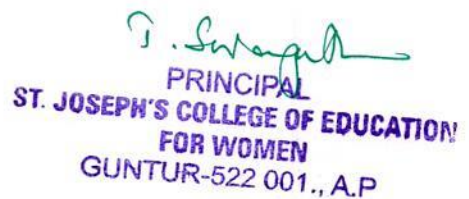 PRINCIPAL
ST. JOSEPH'S COLLEGE OF EDUCATION
FOR WOMEN
GUNTUR-522 001., A.P